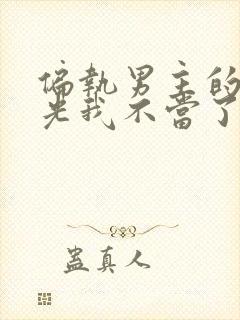 偏執男主的
光我不當了
蠱真人